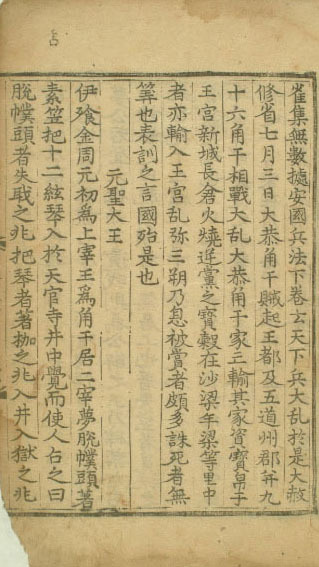 雀集無數㩀安國兵法下卷云天下兵大乱於是大赦
修省七月三日大恭角干賊起王都及五道州郡并九
十六角干相戰大乱大恭角干家亡輸其家資寳帛于
王宮新城長倉火燒逆黨之寳糓在沙梁牟梁等里中
者亦輸入王宮乱弥三朔乃息被賞者頗多誅死者無
筭也表訓之言國殆是也
元聖大王
伊飱金周元初爲上宰王爲角干居二宰夢脫幞頭著
素笠把十二絃琴入於天官寺井中覺而使人占之曰
脫幞頭者失職之兆把琴者著枷之兆入井入獄之兆